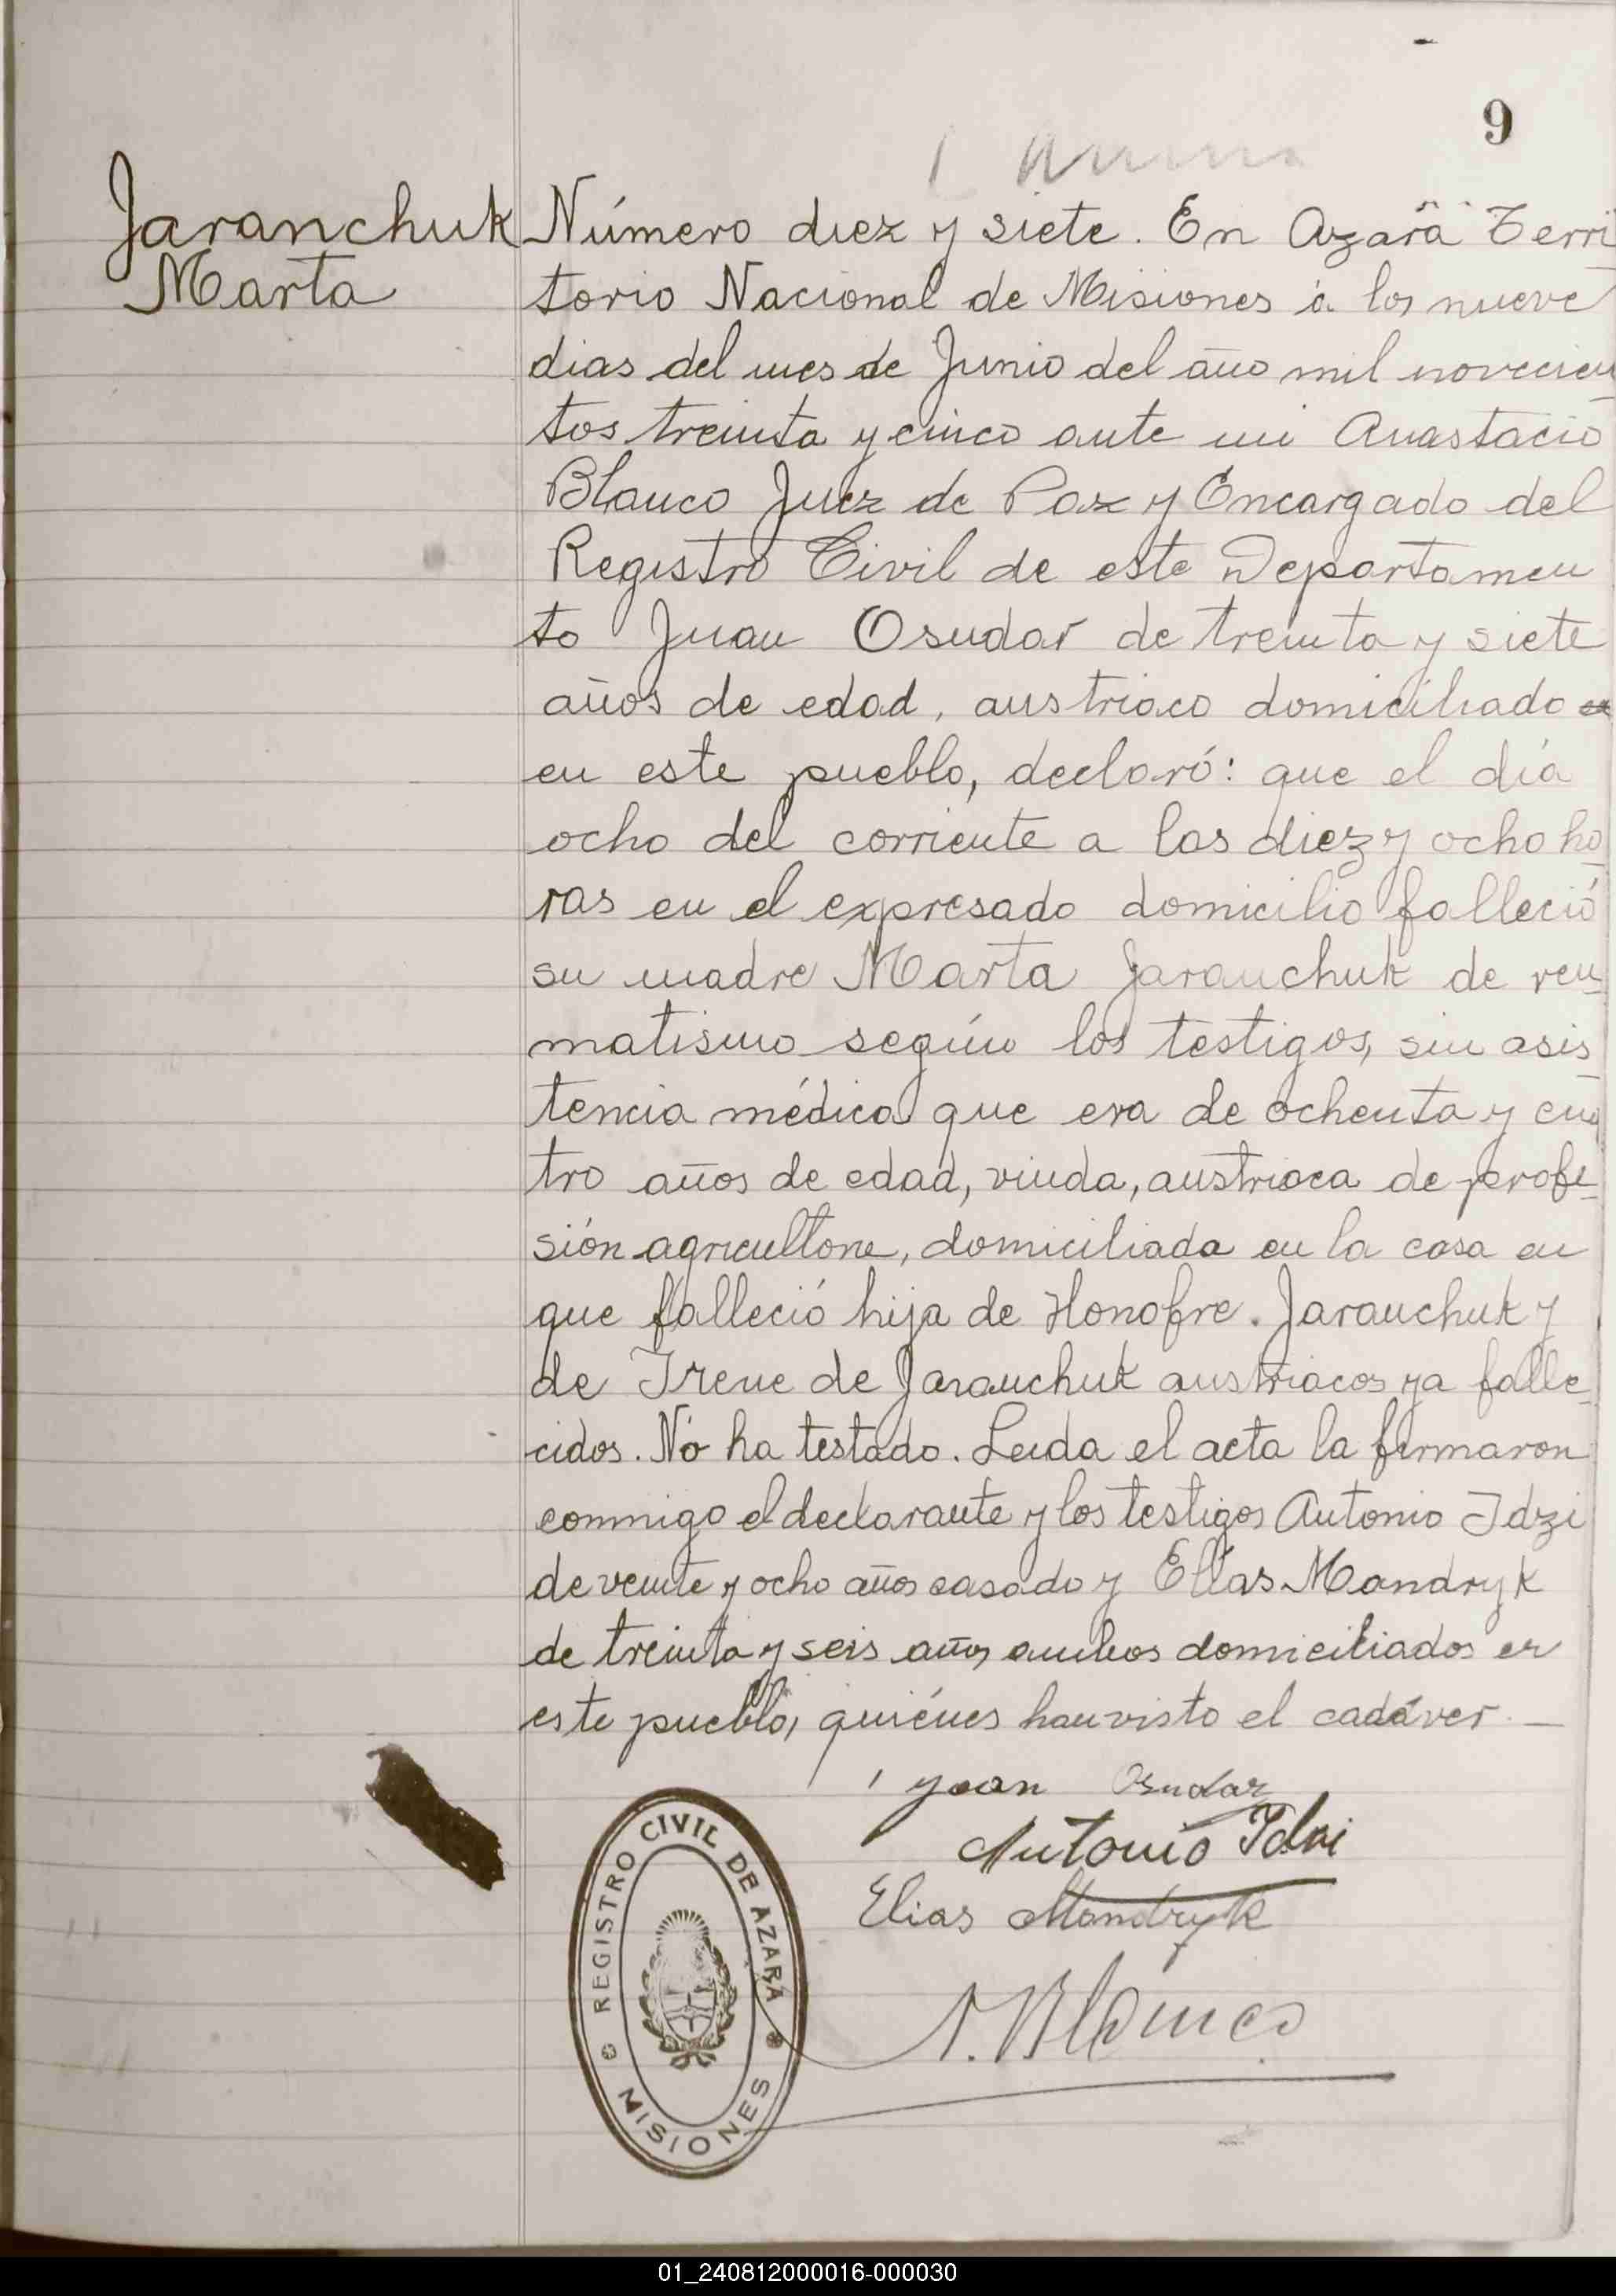 9
Jaranchuk
Marta
Número diez y siete. En Azara Terri
torio Nacional de Misiones á los nueve
dias del mes de Junio del año mil novecien
tos treinta y cinco ante mi Anastacio
Blanco Juez de Paz y Encargado del
Registro Civil de este Departamen
to Juan Osudar de treinta y siete
años de edad, austriaco domiciliado
en este pueblo, declaró: que el día
ocho del corriente a las diez y ocho ho
ras en el expresado domicilio falleció
su madre Marta Jaranchuk de reu
matismo según los testigos, sin asis
tencia médica que era de ochenta y cua
tro años de edad, viuda, austriaca de profe
sión agricultora, domiciliada en la casa en
que falleció hija de Honofre. Jaranchuk y
de Irene de Jaranchuk austriacos ya falle
cidos. No ha testado. Leida el acta la firmaron
conmigo el declarante y los testigos Antonio Idzi
de veinte y ocho años casado y Elías Mandryk
de treinta y seis años ambos domiciliados en
este pueblo, quiénes han visto el cadáver. —
Juan Osudar
Antonio Idzi
Elias Mandryk
A. Blanco
REGISTRO CIVIL DE AZARA
MISIONES
01_240812000016-000030